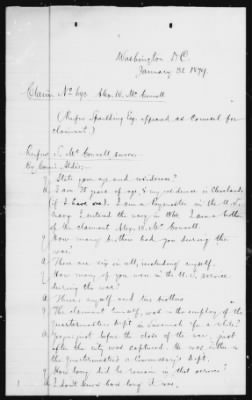 Washington D.C.
January 31 1879.
Claim No 690 Alex. W. McConnell
(Rufus Spaulding Esq. appeared as Counsel for
claimant.)
Rufus S. McConnell, sworn.
By Comr.
Q State your age and residence?
A I am years of age & my residence is Cleveland
(if I have one). I am a Paymaster in the U.S.
Navy. I entered the navy in I am a brother
of the claimant Alex. W. McConnell.
Q How many brothers had you during the
war?
A There are six in all, including myself.
Q How many of you were in the U.S. service
during the war?
A Three; myself and two brothers
Q The claimant himself, was in the employ of the
Quartermasters Dept. in Savannah for a while?
A Yes; just before the close of the war just
after the city was captured. He was either in
the Quartermasters or Commissary's Dept.
Q How long did he remain in that service?
A I don't know how long it was.